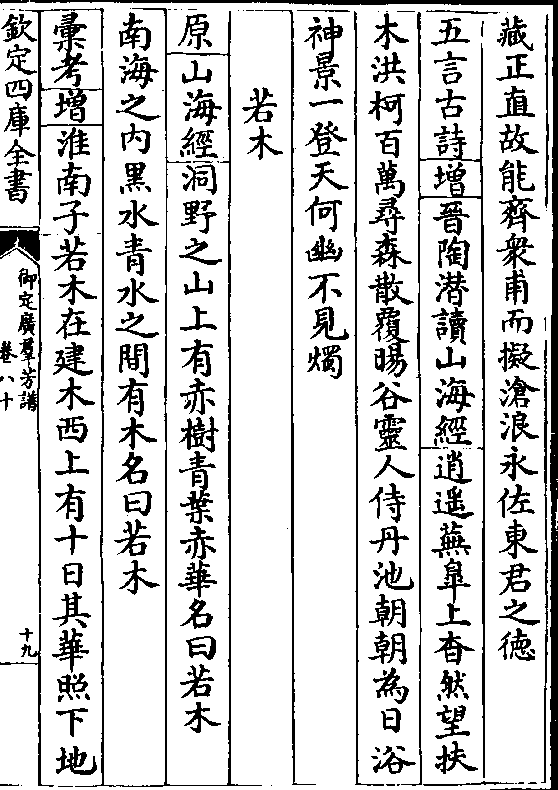 藏正直故能齊衆甫而擬滄浪永佐東君之徳
五言古詩增晉陶潜讀山海經逍遥蕪臯上杳然望扶
木洪柯百萬尋森散覆暘谷靈人侍丹池朝朝為日浴
神景一登天何幽不見燭
若木
原山海經洞野之山上有赤樹青葉赤華名曰若木
南海之内黒水青水之間有木名曰若木
彚考增淮南子若木在建木西上有十日其華照下地
欽定四庫全書
御定廣羣芳譜
卷八十
十九